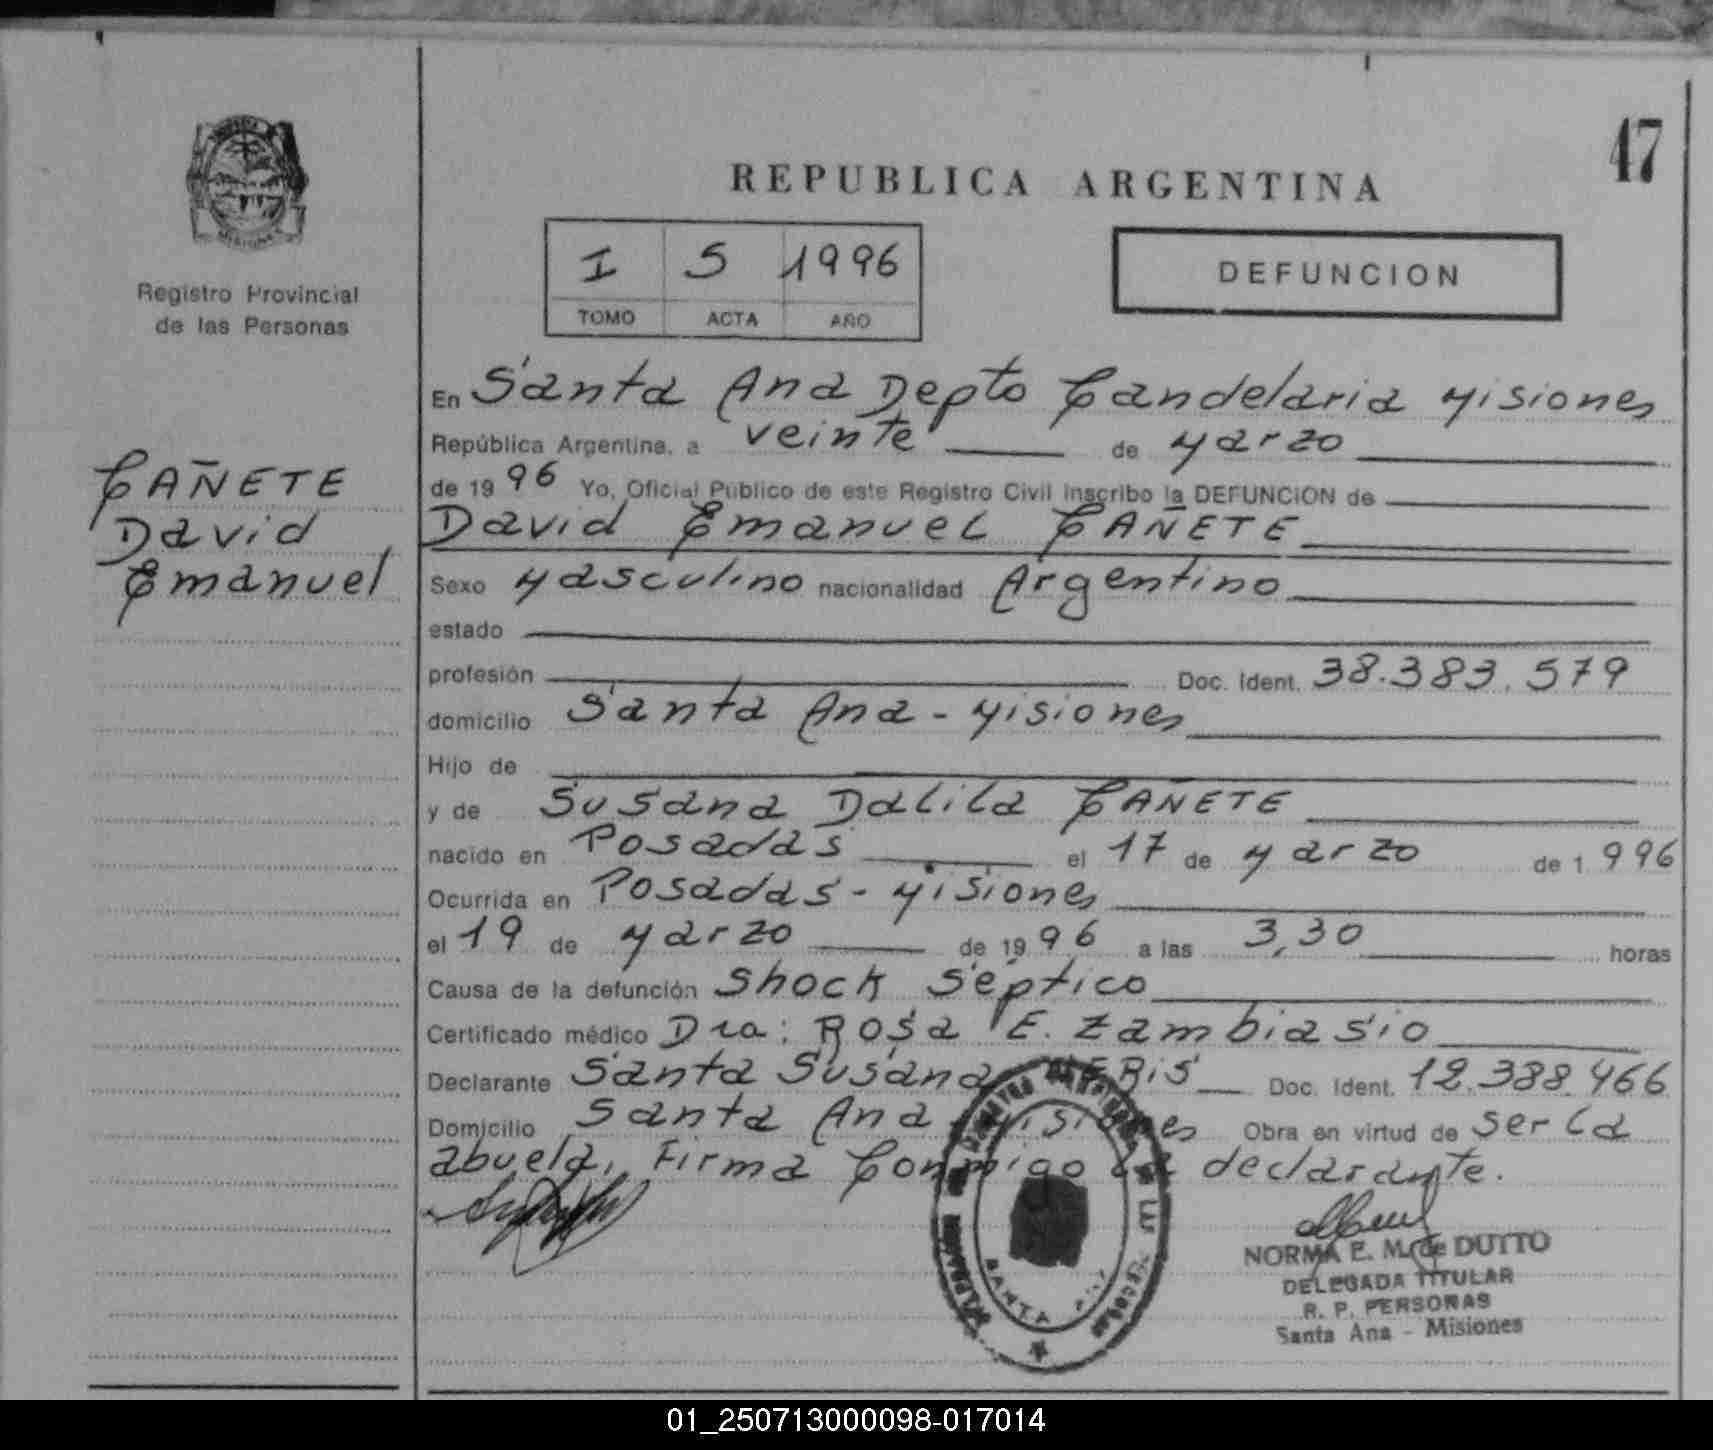 47
REPUBLICA ARGENTINA
I 5 1996
TOMO ACTA AÑO
DEFUNCION
Registro Provincial
de las Personas
CAÑETE
David
Emanuel
En Santa Ana Depto Candelaria Misiones
República Argentina, a veinte de Marzo
de 1996 Yo, Oficial Público de este Registro Civil inscribo la DEFUNCION de
David Emanuel CAÑETE
Sexo Masculino nacionalidad Argentino
estado
profesión Doc. Ident. 38.383.579
domicilio Santa Ana - Misiones
Hijo de
y de Susana Dalila CAÑETE
nacido en Posadas el 17 de Marzo de 1996
Ocurrida en Posadas - Misiones
el 19 de Marzo de 1996 a las 3,30 horas
Causa de la defunción Shock Séptico
Certificado médico Dra: Rosa E. Zambiasio
Declarante Santa Susana Doc. Ident. 12.388.466
Domicilio Santa Ana Misiones Obra en virtud de ser la
abuela, Firma Conmigo la declarante.
NORMA E. M. de DUTTO
DELEGADA TITULAR
R. P. PERSONAS
Santa Ana - Misiones
SANTA ANA
01_250713000098-017014